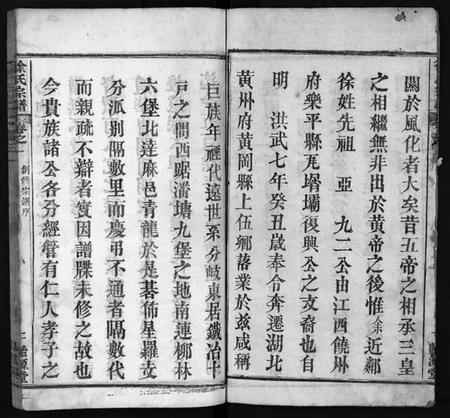 關於風化者大矣昔五帝之相承三皇
之相繼無非出於黃帝之後惟余近鄰
徐姓先祖亞九二公由江西饒州
府樂平縣瓦塔壩復興公之支裔也自
明洪武七年癸丑歲奉令奔遷湖北
黃州府黃岡縣上伍鄉落業於兹咸稱
巨族年禋代遠世系分岐東居鐵冶十
戸之間西踞潘塘九堡之地南連柳林
六堡北達麻邑青龍於是碁佈星羅支
分派別隔數里而慶弔不通者隔數代
而親疏不辯者實因譜牒未修之故也
今貴族諸公各分經管有仁人孝子之
徐氏宗譜
卷之一
創修宗譜序
二